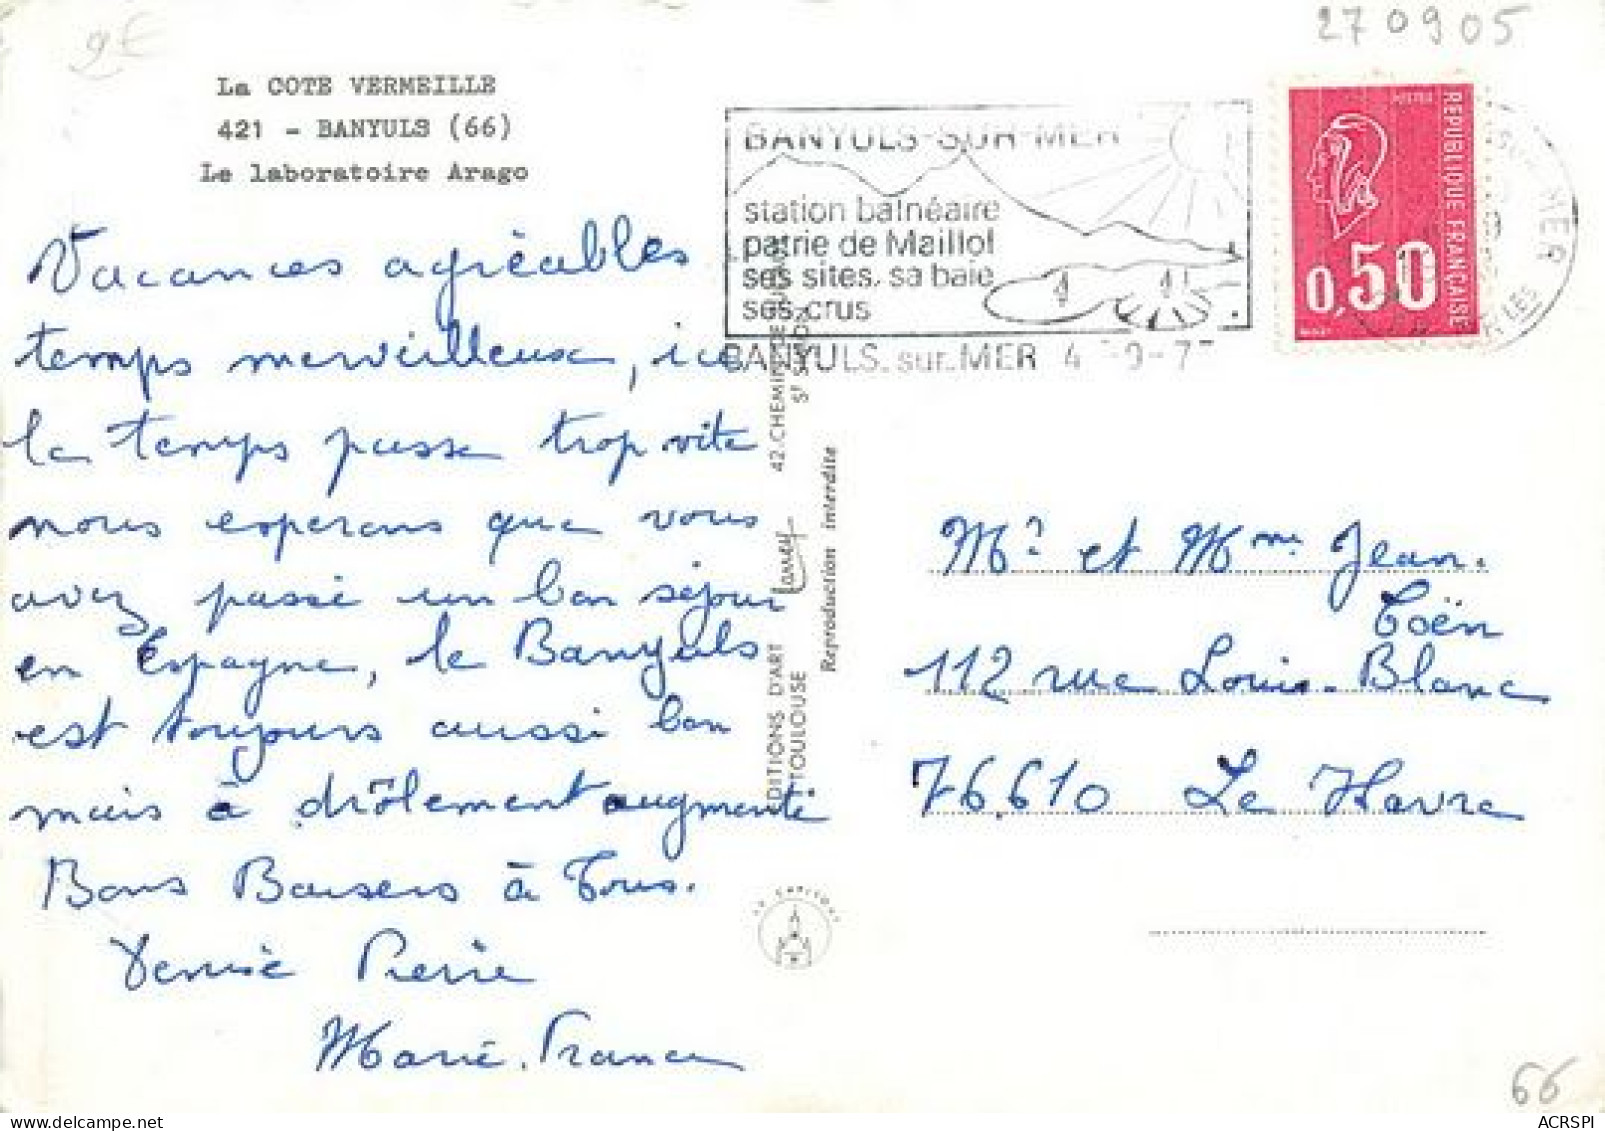 270905
9€
La COTE VERMEILLE
421 - BANYULS (66)
Le laboratoire Arago
BANYULS-SUR-MER
station balnéaire
patrie de Maillol
ses sites, sa baie
ses crus
BANYULS.sur.MER 4 -9-7
POSTES
REPUBLIQUE FRANÇAISE
0,50
SUR MER
Vacances agréables
temps merveilleux, ici
le temps passe trop vite
nous esperons que vous
avez passé un bon séjour
en Espagne, le Banyuls
est toujours aussi bon
mais à drôlement augmenté
Bons Baisers à Tous.
Denise Pierre
Marie-France
EDITIONS D'ART Larrey 42.CHEMIN DE
TOULOUSE ST SIMON
Reproduction interdite
LE CAPITOUL
Mr et Mme Jean.
Coën
112 rue Louis-Blanc
76.610 Le Havre
66
ACRSPI